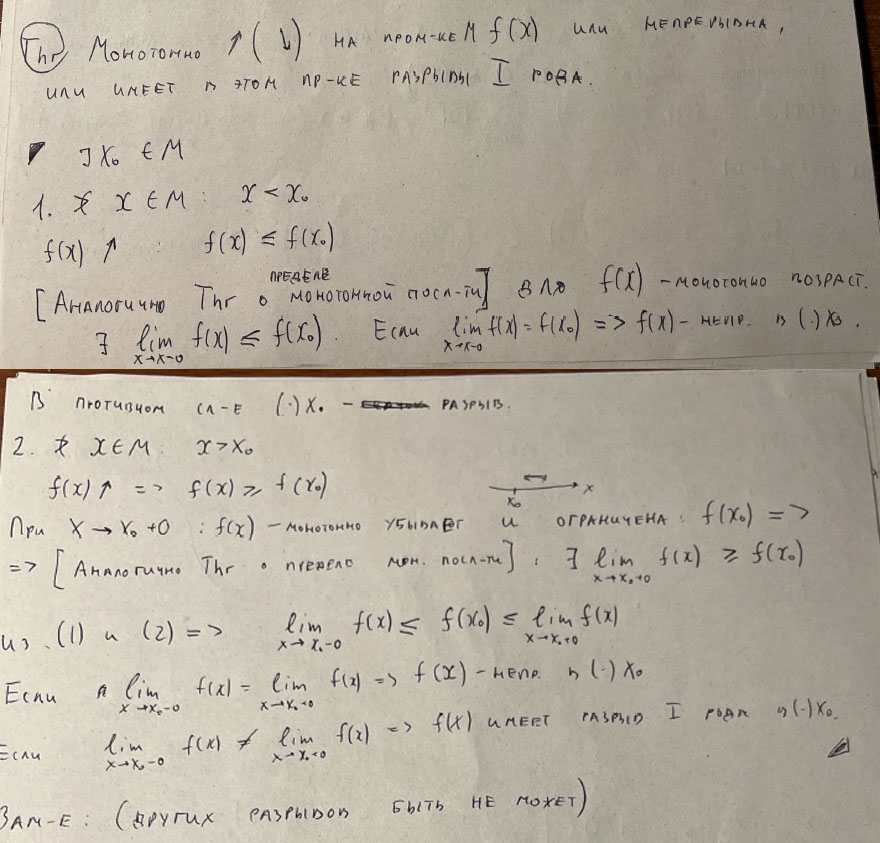 Thr Монотонно ↑ (↓) на пром-ке M f(x) или непрерывна,
или имеет в этом пр-ке разрывы I рода.
∃ x₀ ∈ M
1. ∀ x ∈ M: x < x₀
f(x) ↑ : f(x) ≤ f(x₀)
[Аналогично Thr о пределе монотонной посл-ти] f(x) - монотонно возраст.
∃ lim x→x-0 f(x) ≤ f(x₀). Если lim x→x-0 f(x) = f(x₀) => f(x) - непр. в (·) x₀.
В противном сл-е (·) x₀ - разрыв.
2. ∀ x ∈ M: x > x₀
f(x) ↑ => f(x) ≥ f(x₀)
x₀ x
При x → x₀ +0 : f(x) - монотонно убывает и ограничена: f(x₀) =>
=> [Аналогично Thr о пределе мон. посл-ти] : ∃ lim x→x₀+0 f(x) ≥ f(x₀)
из (1) и (2) => lim x→x₀-0 f(x) ≤ f(x₀) ≤ lim x→x₀+0 f(x)
Если lim x→x₀-0 f(x) = lim x→x₀+0 f(x) => f(x) - непр. в (·) x₀
Если lim x→x₀-0 f(x) ≠ lim x→x₀+0 f(x) => f(x) имеет разрыв I рода в (·) x₀.
Зам-е: (других разрывов быть не может)